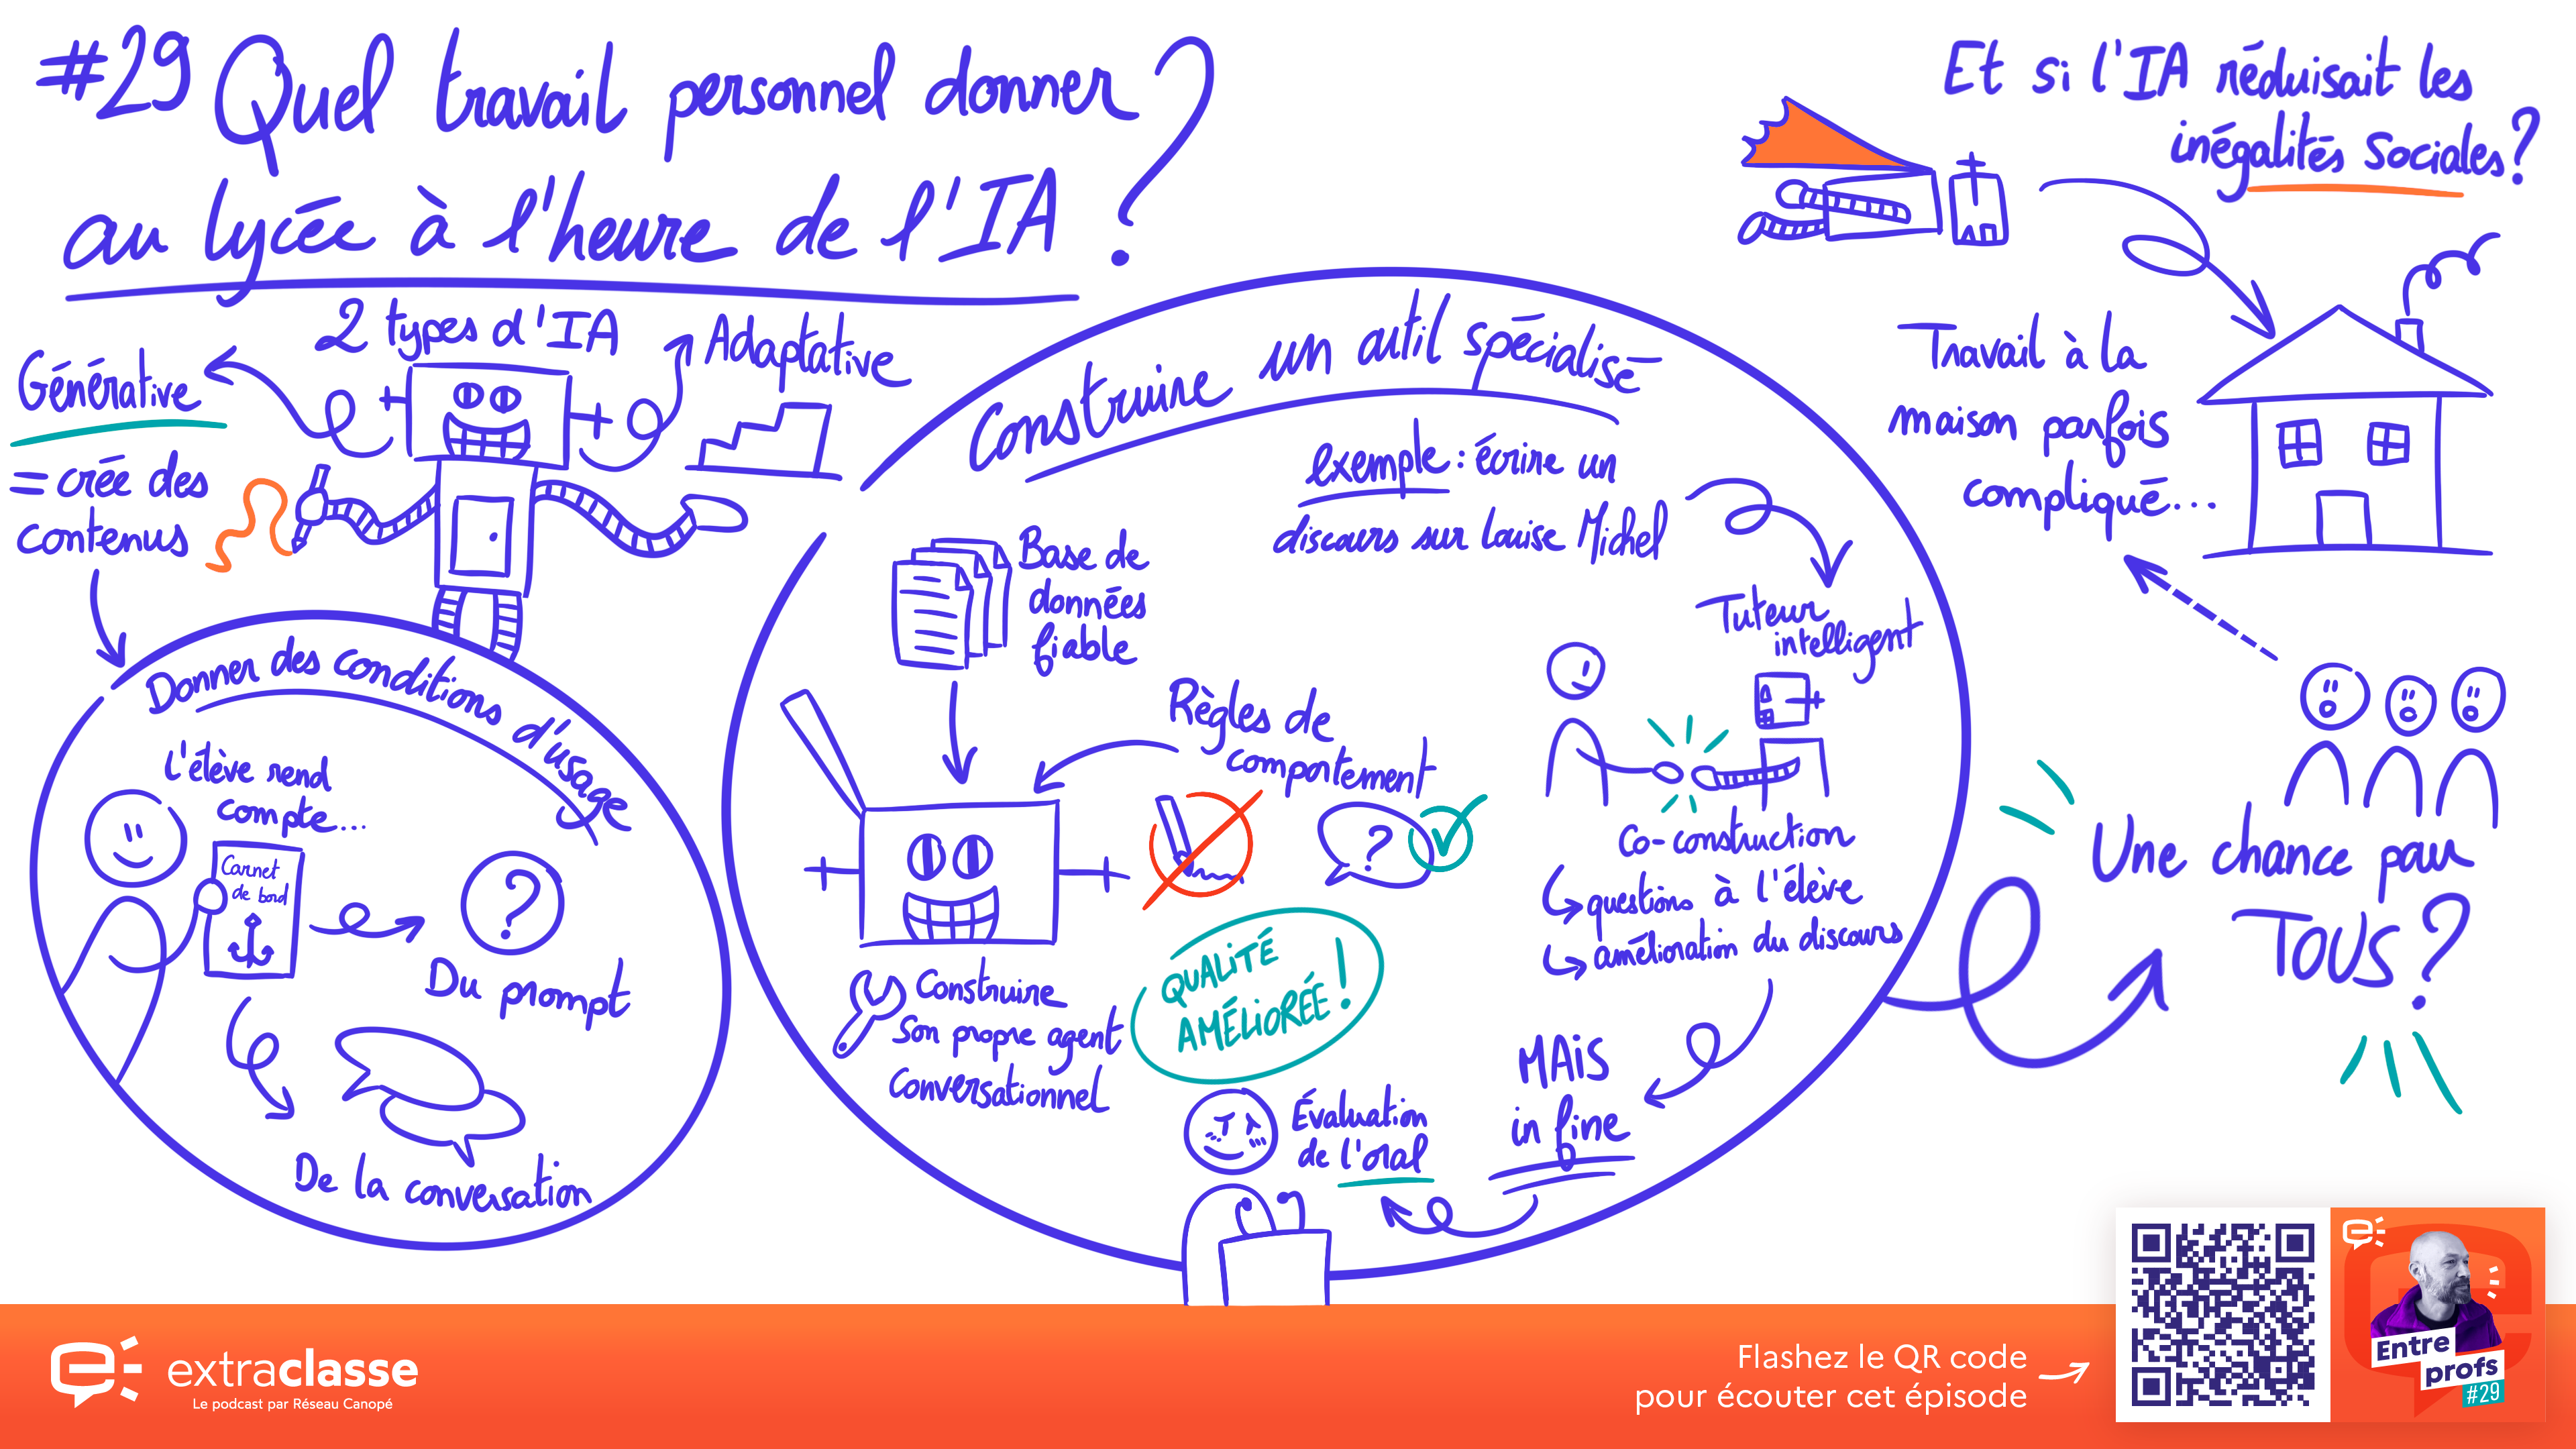 #29 Quel travail personnel donner
au lycée à l'heure de l'IA ?
2 types d'IA
Générative
= crée des
contenus
Adaptative
Donner des conditions d'usage
L'élève rend
compte...
Carnet
de bord
?
Du prompt
De la conversation
Construire un outil spécialisé
exemple : écrire un
discours sur Louise Michel
Base de
données
fiable
Règles de
comportement
?
Construire
son propre agent
conversationnel
QUALITÉ
AMÉLIORÉE !
Tuteur
intelligent
Co-construction
questions à l'élève
amélioration du discours
MAIS
in fine
Évaluation
de l'oral
Et si l'IA réduisait les
inégalités sociales ?
Travail à la
maison parfois
compliqué...
Une chance pour
TOUS ?
extraclasse
Le podcast par Réseau Canopé
Flashez le QR code
pour écouter cet épisode
Entre
profs
#29